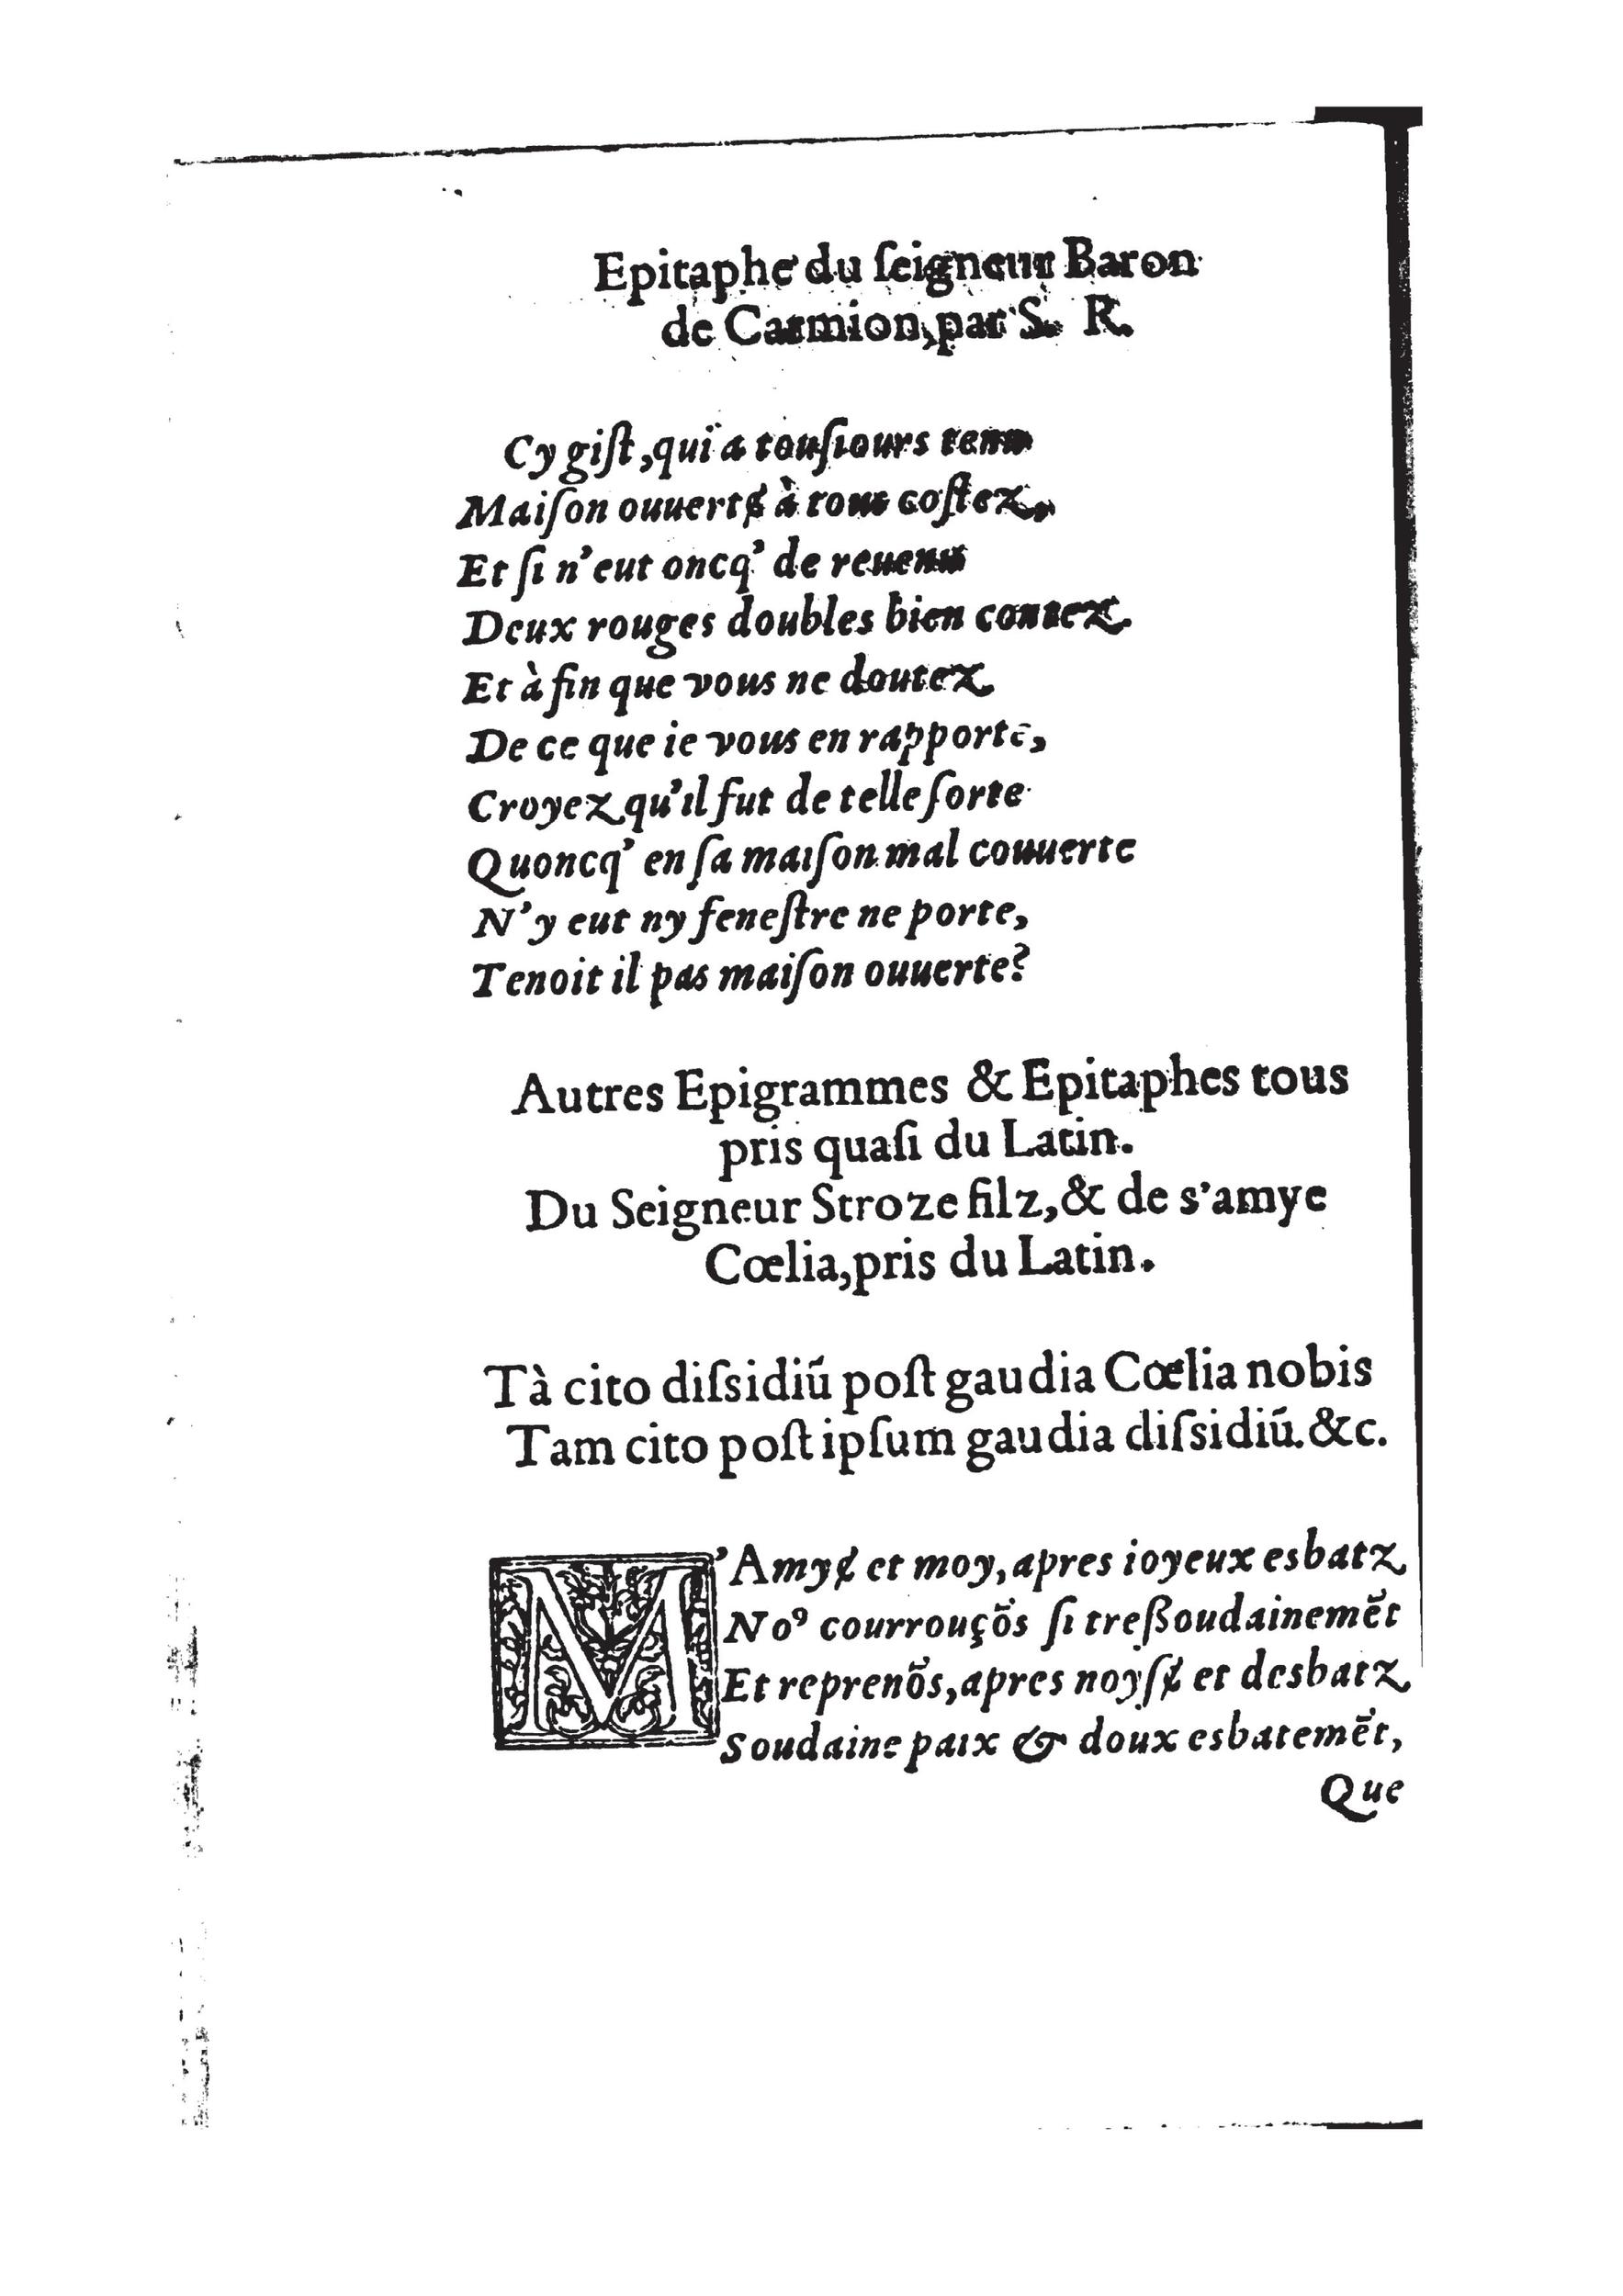 Epitaphe du ſeigneur Baron
de Carmion, par S. R.
Cy giſt, qui a touſiours tenu
Maiſon ouuertɇ à tous coſtez,
Et ſi n'eut oncq' de reuenu
Deux rouges doubles bien contez.
Et à fin que vous ne doutez
De ce que ie vous en rapporte,
Croyez qu'il fut de telle ſorte
Quoncq' en ſa maiſon mal couuerte
N'y eut ny feneſtre ne porte,
Tenoit il pas maiſon ouuerte?
Autres Epigrammes & Epitaphes tous
pris quaſi du Latin.
Du Seigneur Stroze filz, & de s'amye
Cœlia, pris du Latin.
Tà cito diſsidiũ poſt gaudia Cœlia nobis
Tam cito poſt ipſum gaudia diſsidiũ. &c.
M'Amyɇ et moy, apres ioyeux esbatz
Noꝰ courrouçõs ſi treſßoudainemẽt
Et reprenõs, apres noyſɇ et desbatz
Soudaine paix & doux esbatemẽt,
Que